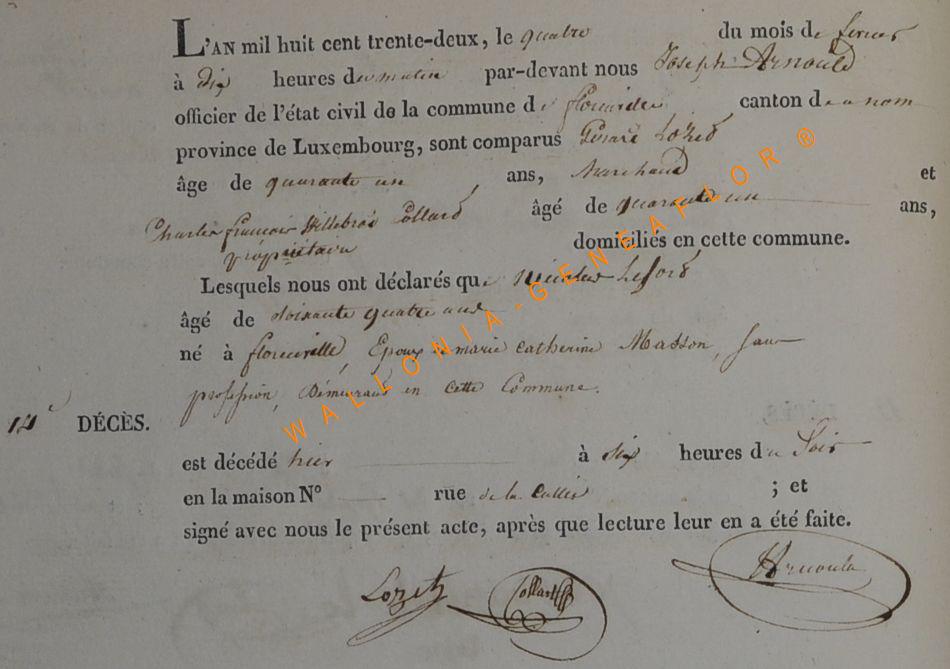 L'AN mil huit cent trente-deux, le quatre du mois de fevrier
à dix heures du matin par-devant nous Joseph Arnould
officier de l'état civil de la commune de florenville canton de ce nom
province de Luxembourg, sont comparus Gérard Lozet
âge de quarante un ans, Marchand et
Charles françois Collard âgé de quarante un ans,
propriétaire domiciliés en cette commune.
Lesquels nous ont déclarés que Nicolas
âgé de soixante quatre ans
né à florenville, Epoux de marie catherine Masson, sans
profession, Démeurant en cette Commune.
14e DÉCÈS.
est décédé hier à six heures du Soir
en la maison N° rue de la ; et
signé avec nous le présent acte, après que lecture leur en a été faite.
Lozet Collard Arnould
WALLONIA-GENEAFLOR ®